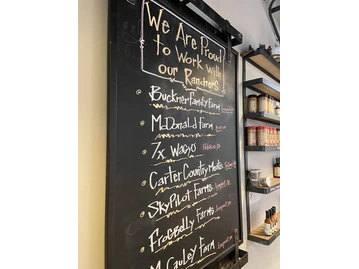 We Are Proud
to Work with
our Ranchers
Buckner Family Farm
McDonald Farm
7x Wagyu
Carter Country Meats
SkyPilot Farms
Frogbelly Farms
McCauley Farm